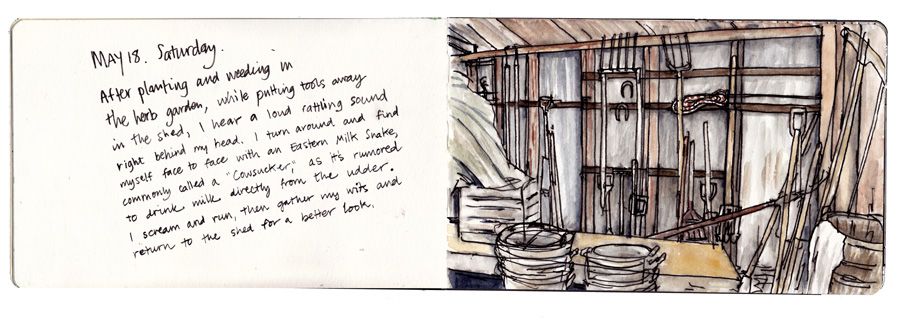 MAY 18. Saturday.
After planting and weeding in
the herb garden, while putting tools away
in the shed, I hear a loud rattling sound
right behind my head. I turn around and find
myself face to face with an Eastern Milk Snake,
commonly called a "Cowsucker," as it's rumored
to drink milk directly from the udder.
I scream and run, then gather my wits and
return to the shed for a better look.